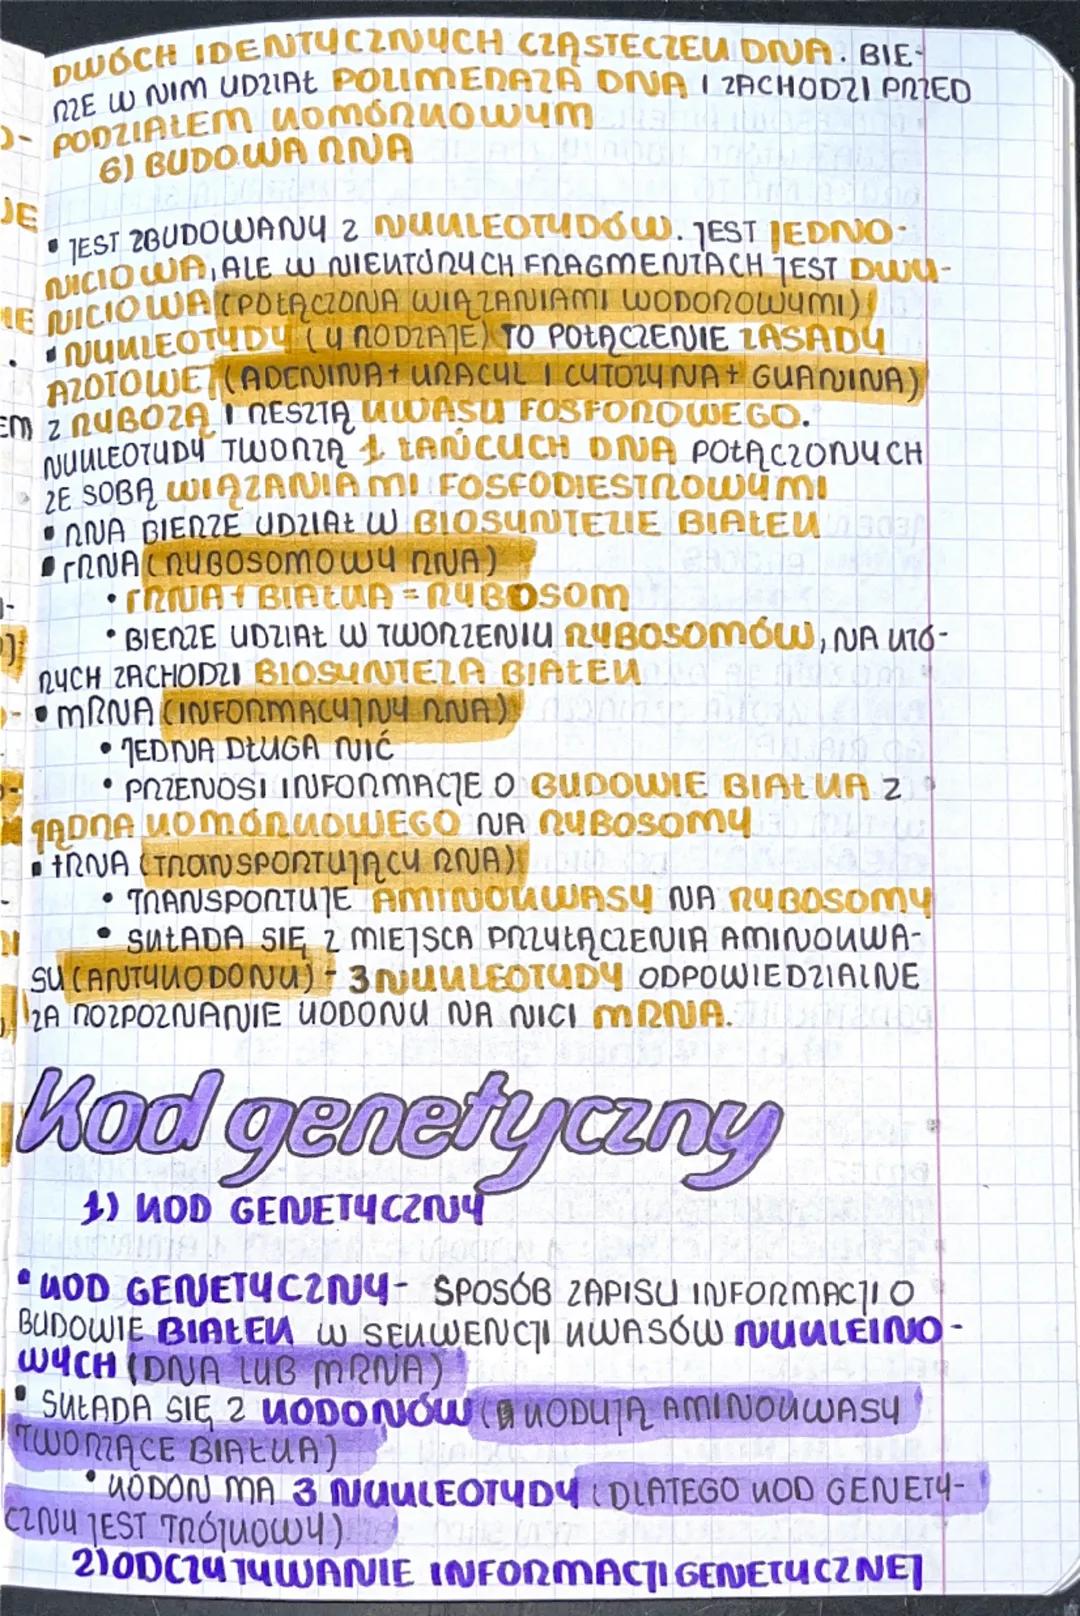 DWÓCH IDENTYCZNYCH CZĄSTECZEK DNA. BIE-
RZE W NIM UDZIAŁ POLIMERAZA DNA I ZACHODZI PRZED
PODZIAŁEM KOMÓRKOWYM
6) BUDOWA RNA
• JEST ZBUDOWANY Z NUKLEOTYDÓW. JEST JEDNO-
NICIOWA, ALE W NIEKTÓRYCH FRAGMENTACH JEST DWU-
NICIOWA (POŁĄCZONA WIĄZANIAMI WODOROWYMI)
• NUKLEOTYDY (4 RODZAJE) TO POŁĄCZENIE ZASADY
AZOTOWEJ (ADENINA + URACYL I CYTOZYNA + GUANINA)
Z RYBOZĄ I RESZTĄ KWASU FOSFOROWEGO.
NUKLEOTYDY TWORZĄ 1 ŁAŃCUCH DNA POŁĄCZONYCH
ZE SOBĄ WIĄZANIAMI FOSFODIESTROWYMI
• RNA BIERZE UDZIAŁ W BIOSYNTEZIE BIAŁEK
• rRNA (RYBOSOMOWY RNA)
• rRNA + BIAŁKA = RYBOSOM
• BIERZE UDZIAŁ W TWORZENIU RYBOSOMÓW, NA KTÓ-
RYCH ZACHODZI BIOSYNTEZA BIAŁEK
• mRNA (INFORMACYJNY RNA)
• JEDNA DŁUGA NIĆ
• PRZENOSI INFORMACJE O BUDOWIE BIAŁKA Z
JĄDRA KOMÓRKOWEGO NA RYBOSOMY
• tRNA (TRANSPORTUJĄCY RNA)
• TRANSPORTUJE AMINOKWASY NA RYBOSOMY
• SKŁADA SIĘ Z MIEJSCA PRZYŁĄCZENIA AMINOKWA-
SU (ANTYKODONU) - 3 NUKLEOTYDY ODPOWIEDZIALNE
ZA ROZPOZNANIE KODONU NA NICI mRNA.
Kod genetyczny
1) KOD GENETYCZNY
• KOD GENETYCZNY - SPOSÓB ZAPISU INFORMACJI O
BUDOWIE BIAŁEK W SEKWENCJI KWASÓW NUKLEINO-
WYCH (DNA LUB mRNA)
• SKŁADA SIĘ Z KODONÓW (KODUJĄ AMINOKWASY
TWORZĄCE BIAŁKA)
• KODON MA 3 NUKLEOTYDY (DLATEGO KOD GENETY-
CZNY JEST TRÓJKOWY)
2) ODCZYTYWANIE INFORMACJI GENETYCZNEJ